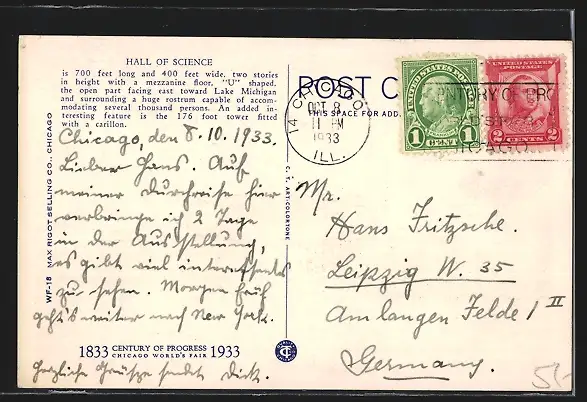 HALL OF SCIENCE
is 700 feet long and 400 feet wide, two stories
in height with a mezzanine floor, "U" shaped,
the open part facing east toward Lake Michigan
and surrounding a huge rostrum capable of accom-
modating several thousand persons. An added in-
teresting feature is the 176 foot tower fitted
with a carillon.
Chicago, den 8.10.1933.
Lieber Hans. Auf
meiner Durchreise hier
verbringe ich 2 Tage
in der Ausstellung,
es gibt viel interessantes
zu sehen. Morgen früh
geht's weiter nach New York.
1833 CENTURY OF PROGRESS 1933
CHICAGO WORLD'S FAIR
Herzliche Grüsse sendet Dick.
WF-18 MAX RIGOT SELLING CO., CHICAGO
C. T. ART-COLORTONE
POST C
THIS SPACE FOR ADD
14 CHICAGO
OCT 8
11 PM
1933
ILL.
UNITED STATES POSTAGE
1 CENT 1
UNITED STATES
POSTAGE
2 CENTS 2
Mr.
Hans Fritzsche.
Leipzig W. 35
Am langen Felde 1 II
Germany.
5/-